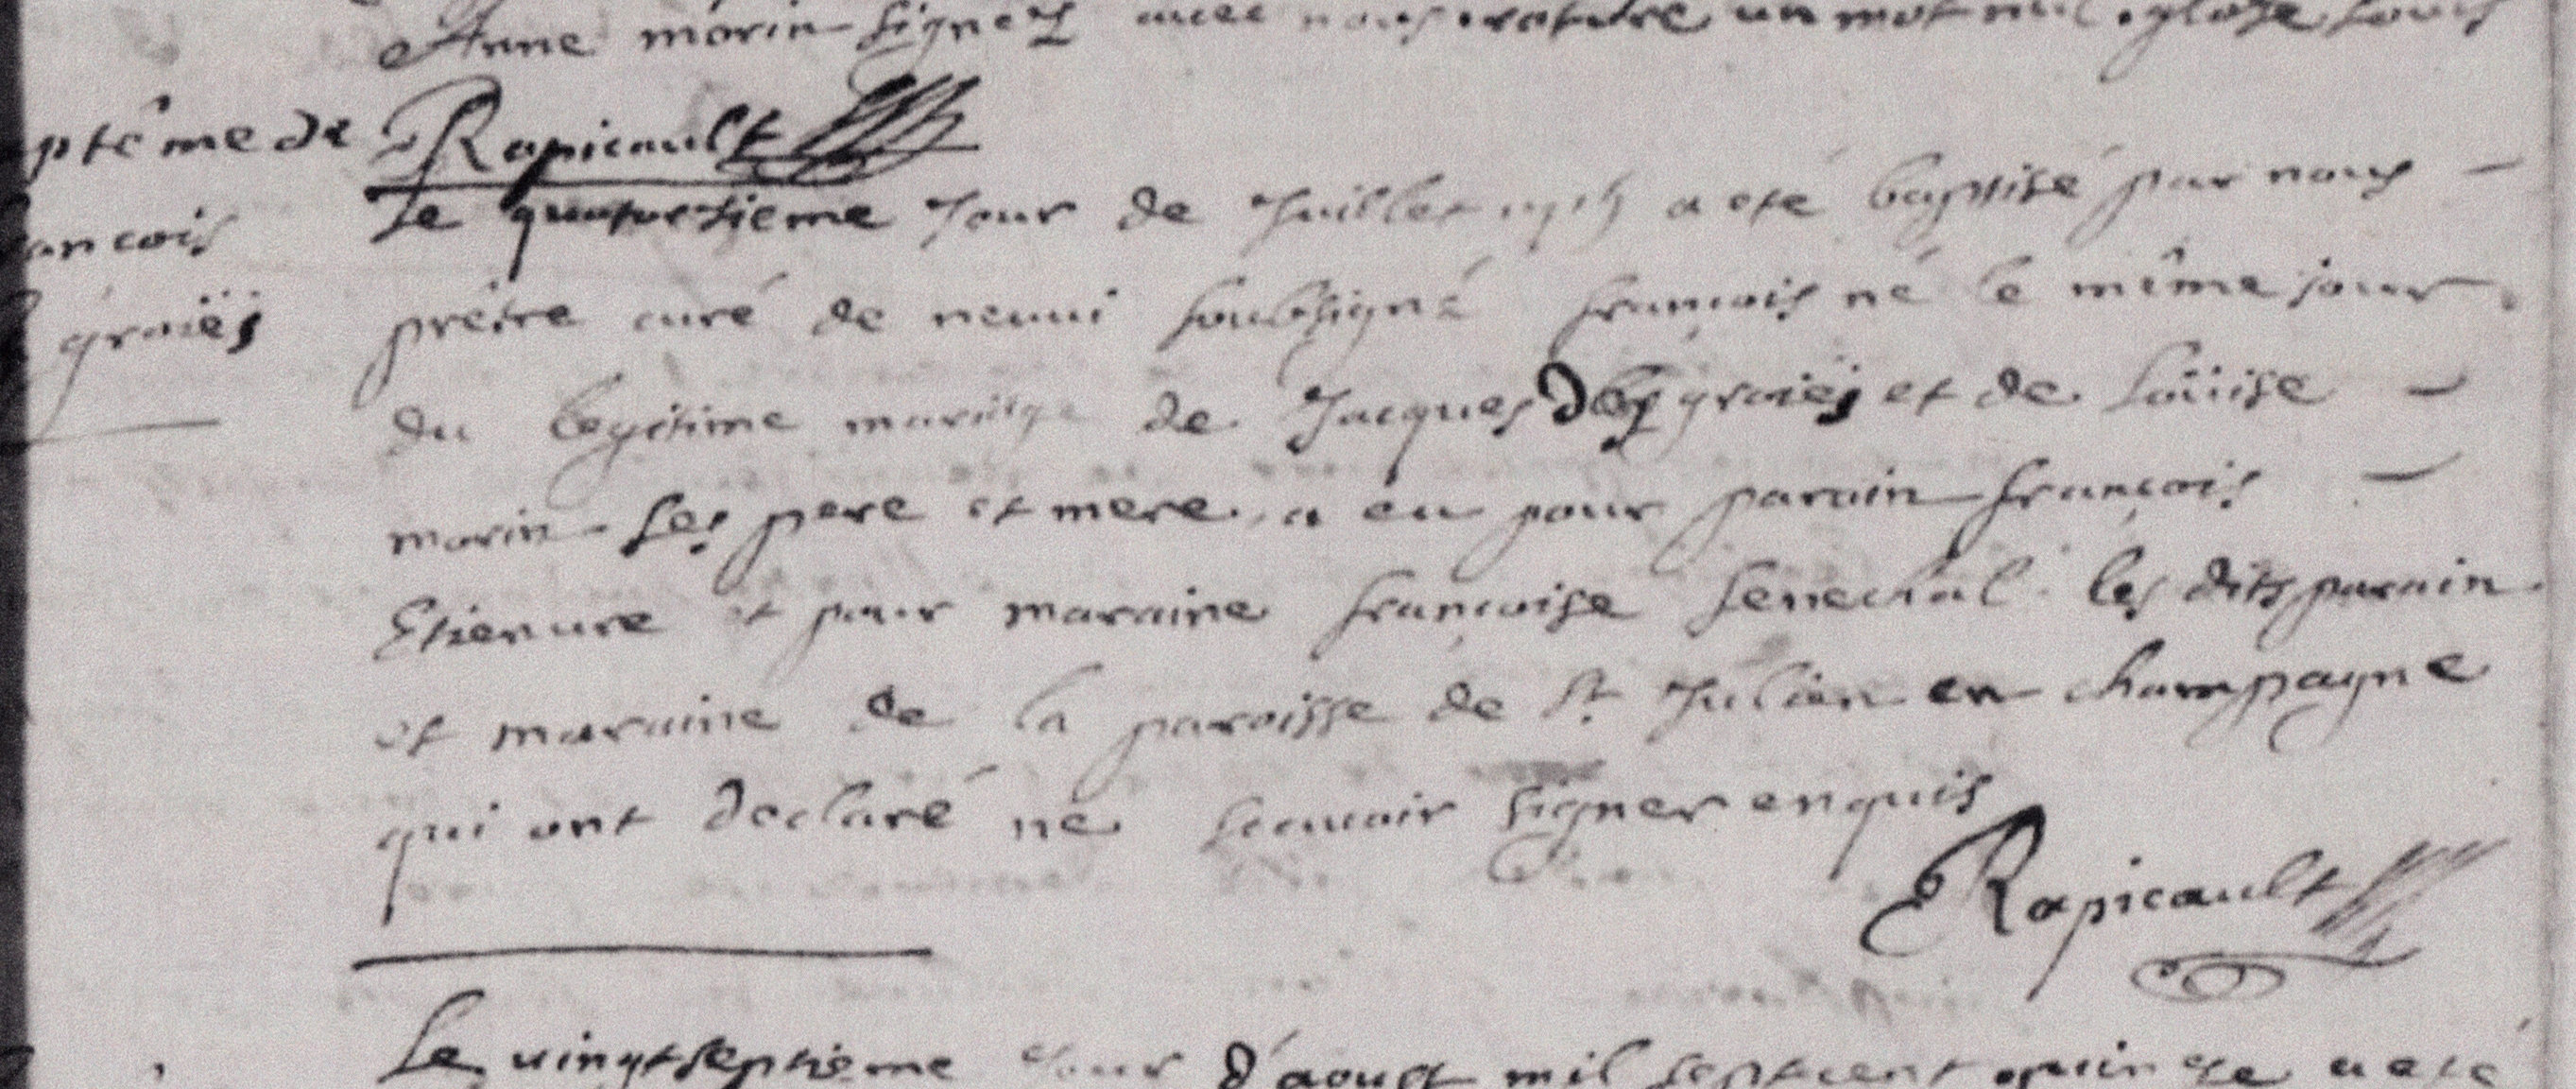 Anne morin signez avec nous rature un mot nul glose
Rapicault
ptême de
ancois
graiës
Le quatorzieme Jour de Juillet 1715 a eté baptisé par nous
prêtre curé de neuui soubsigné francois né le même jour
du legitime mariage de Jacques Des graiës et de Loüise
morin ses pere et mere, a eu pour parain francois
Etienvre et pour maraine francoise senechal les dits parain
et maraine de la paroisse de St Julien en champagne
qui ont declaré ne scauoir signer enquis
Rapicault
Le vingt septieme Jour d'aoust mil sept cent quinze a eté